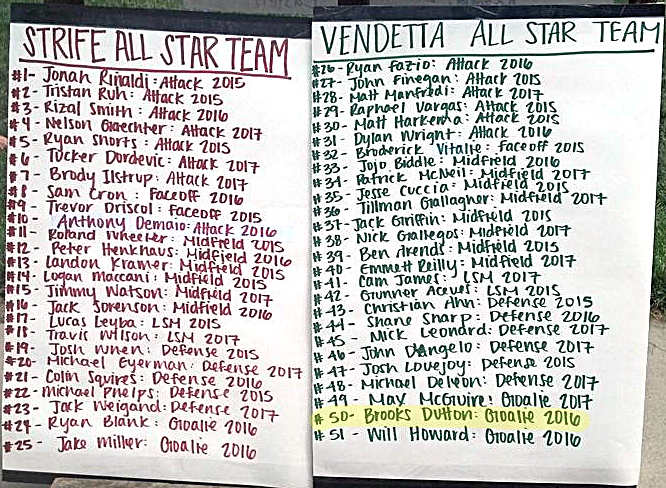 STRIFE ALL STAR TEAM
#1- Jonah Rinaldi: Attack 2015
#2- Tristan Ruh: Attack 2015
#3- Rizal Smith: Attack 2016
#4- Nelson Gaechter: Attack 2017
#5- Ryan Shorts: Attack 2015
#6- Tucker Dordevic: Attack 2017
#7- Brody Ilstrup: Attack 2017
#8- Sam Cron: Faceoff 2016
#9- Trevor Driscol: Faceoff 2015
#10- Anthony Demaio: Attack 2016
#11- Roland Wheeler: Midfield 2015
#12- Peter Henkhaus: Midfield 2016
#13- Landon Kramer: Midfield 2015
#14- Logan Maccani: Midfield 2015
#15- Jimmy Watson: Midfield 2017
#16- Jack Sorenson: Midfield 2016
#17- Lucas Leyba: LSM 2015
#18- Travis Wilson: LSM 2017
#19- Josh When: Defense 2015
#20- Michael Eyerman: Defense 2017
#21- Colin Squires: Defense 2016
#22- Michael Phelps: Defense 2015
#23- Jack Weigand: Defense 2017
#24- Ryan Blank: Goalie 2016
#25- Jake Miller: Goalie 2016
VENDETTA ALL STAR TEAM
#26- Ryan Fazio: Attack 2016
#27- John Finegan: Attack 2015
#28- Matt Manfredi: Attack 2017
#29- Raphael Vargas: Attack 2015
#30- Matt Harkema: Attack 2015
#31- Dylan Wright: Attack 2016
#32- Broderick Vitalie: Faceoff 2015
#33- Jojo Biddle: Midfield 2016
#34- Patrick McNeil: Midfield 2017
#35- Jesse Cuccia: Midfield 2015
#36- Tillman Gallagher: Midfield 2017
#37- Jack Griffin: Midfield 2015
#38- Nick Gallegos: Midfield 2017
#39- Ben Arends: Midfield 2015
#40- Emmett Reilly: Midfield 2017
#41- Cam James: LSM 2017
#42- Gunner Aceves: LSM 2015
#43- Christian Ahn: Defense 2015
#44- Shane Sharp: Defense 2016
#45- Nick Leonard: Defense 2017
#46- John D'Angelo: Defense 2017
#47- Josh Lovejoy: Defense 2015
#48- Michael Deleon: Defense 2017
#49- Max McGuire: Goalie 2017
#50- Brooks Dutton: Goalie 2016
#51- Will Howard: Goalie 2016